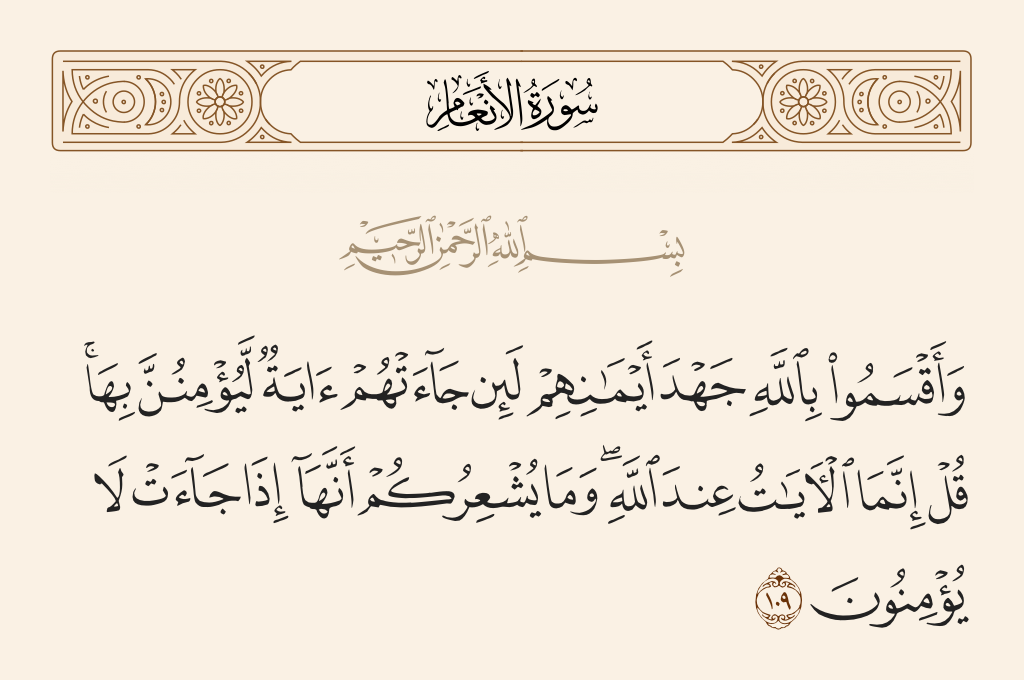 سُورَةُ الأَنْعَامِ
بِسْمِ ٱللَّهِ ٱلرَّحْمَٰنِ ٱلرَّحِيمِ
وَأَقْسَمُوا۟ بِٱللَّهِ جَهْدَ أَيْمَـٰنِهِمْ لَئِن جَآءَتْهُمْ ءَايَةٌ لَّيُؤْمِنُنَّ بِهَا ۚ
قُلْ إِنَّمَا ٱلْـَٔايَـٰتُ عِندَ ٱللَّهِ ۖ وَمَا يُشْعِرُكُمْ أَنَّهَآ إِذَا جَآءَتْ لَا
يُؤْمِنُونَ ١٠٩